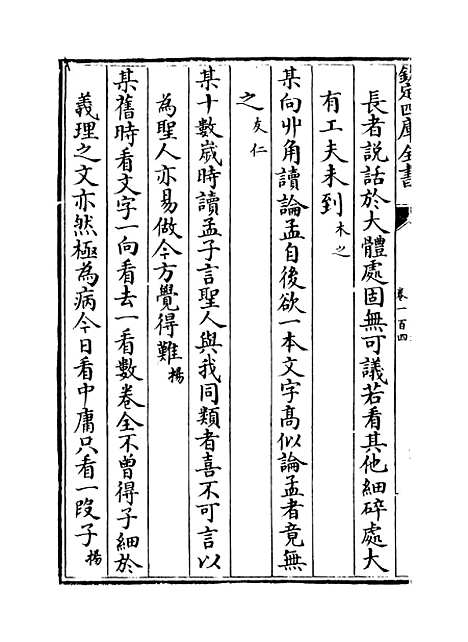 欽定四庫全書
卷一百四
長者說話於大體處固無可議若看其他細碎處大
有工夫未到木之
某向丱角讀論孟自後欲一本文字髙似論孟者竟無
之友仁
某十數嵗時讀孟子言聖人與我同類者喜不可言以
為聖人亦易做今方覺得難揚
某舊時看文字一向看去一看數卷全不曾得子細於
義理之文亦然極為病今日看中庸只看一段子揚